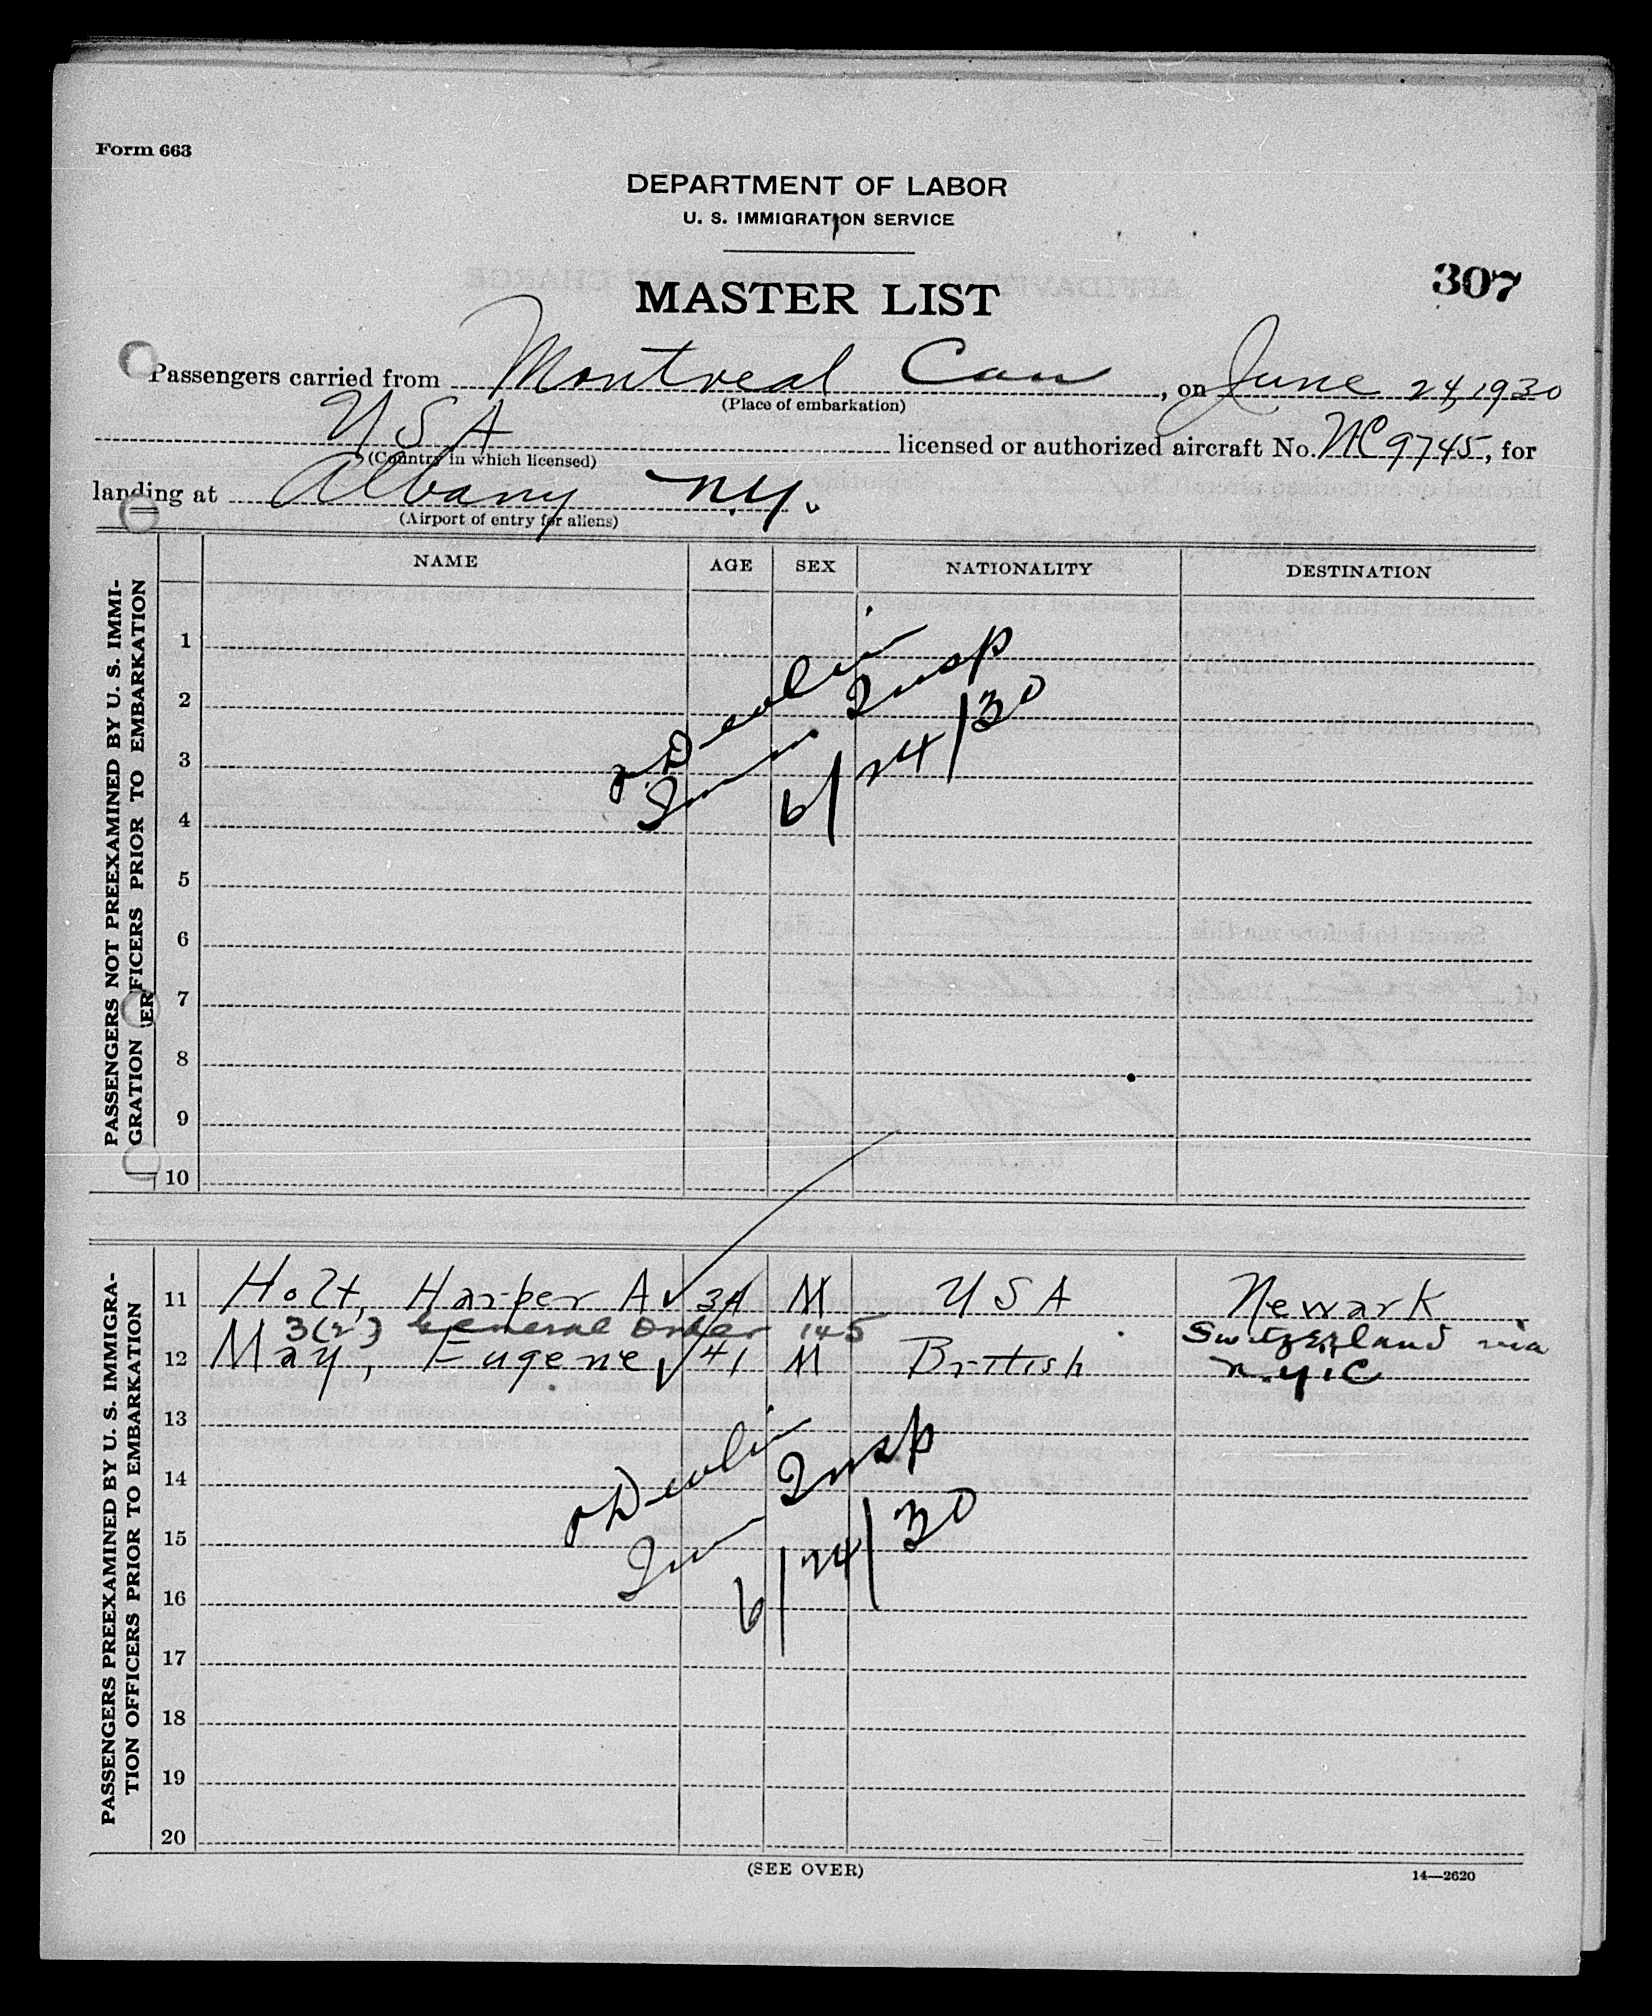 Form 663
DEPARTMENT OF LABOR
U. S. IMMIGRATION SERVICE
307
MASTER LIST
Passengers carried from Montreal Can, on June 24, 1930
(Place of embarkation)
USA licensed or authorized aircraft No. NC 9745, for
(Country in which licensed)
landing at Albany N.Y.
(Airport of entry for aliens)
NAME AGE SEX NATIONALITY DESTINATION
PASSENGERS NOT PREEXAMINED BY U. S. IMMI-
GRATION OFFICERS PRIOR TO EMBARKATION
1
2
3
4
5
6
7
8
9
10
Devlin
Imm Insp
6/24/30
PASSENGERS PREEXAMINED BY U. S. IMMIGRA-
TION OFFICERS PRIOR TO EMBARKATION
11 Holt, Harper A 34 M USA Newark
3(2) General Order 145 Switzerland via
12 May, Eugene 41 M British N.Y.C
13
14
15
16
17
18
19
20
Devlin
Imm Insp
6/24/30
(SEE OVER)
14—2620